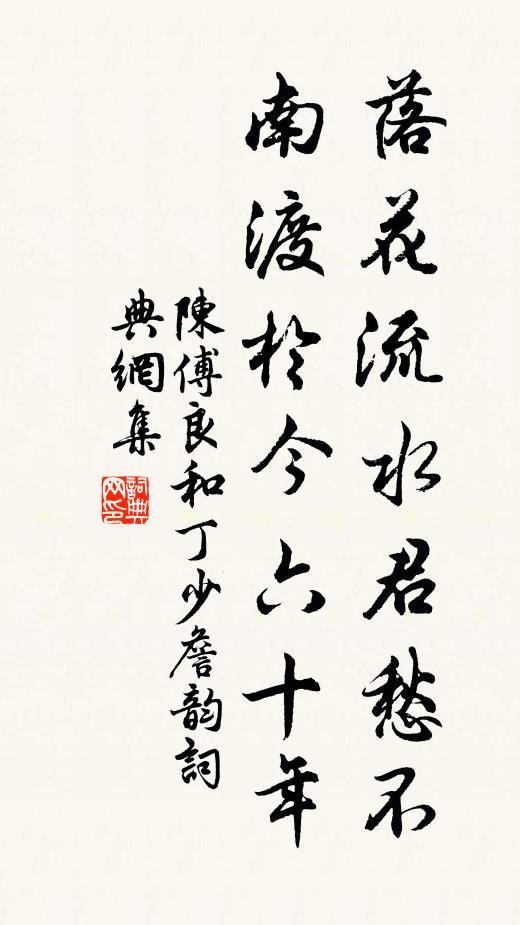 落花流水君愁不
南渡於今六十年
陳傅良和丁少詹韵詞
典網集
詞典
网印